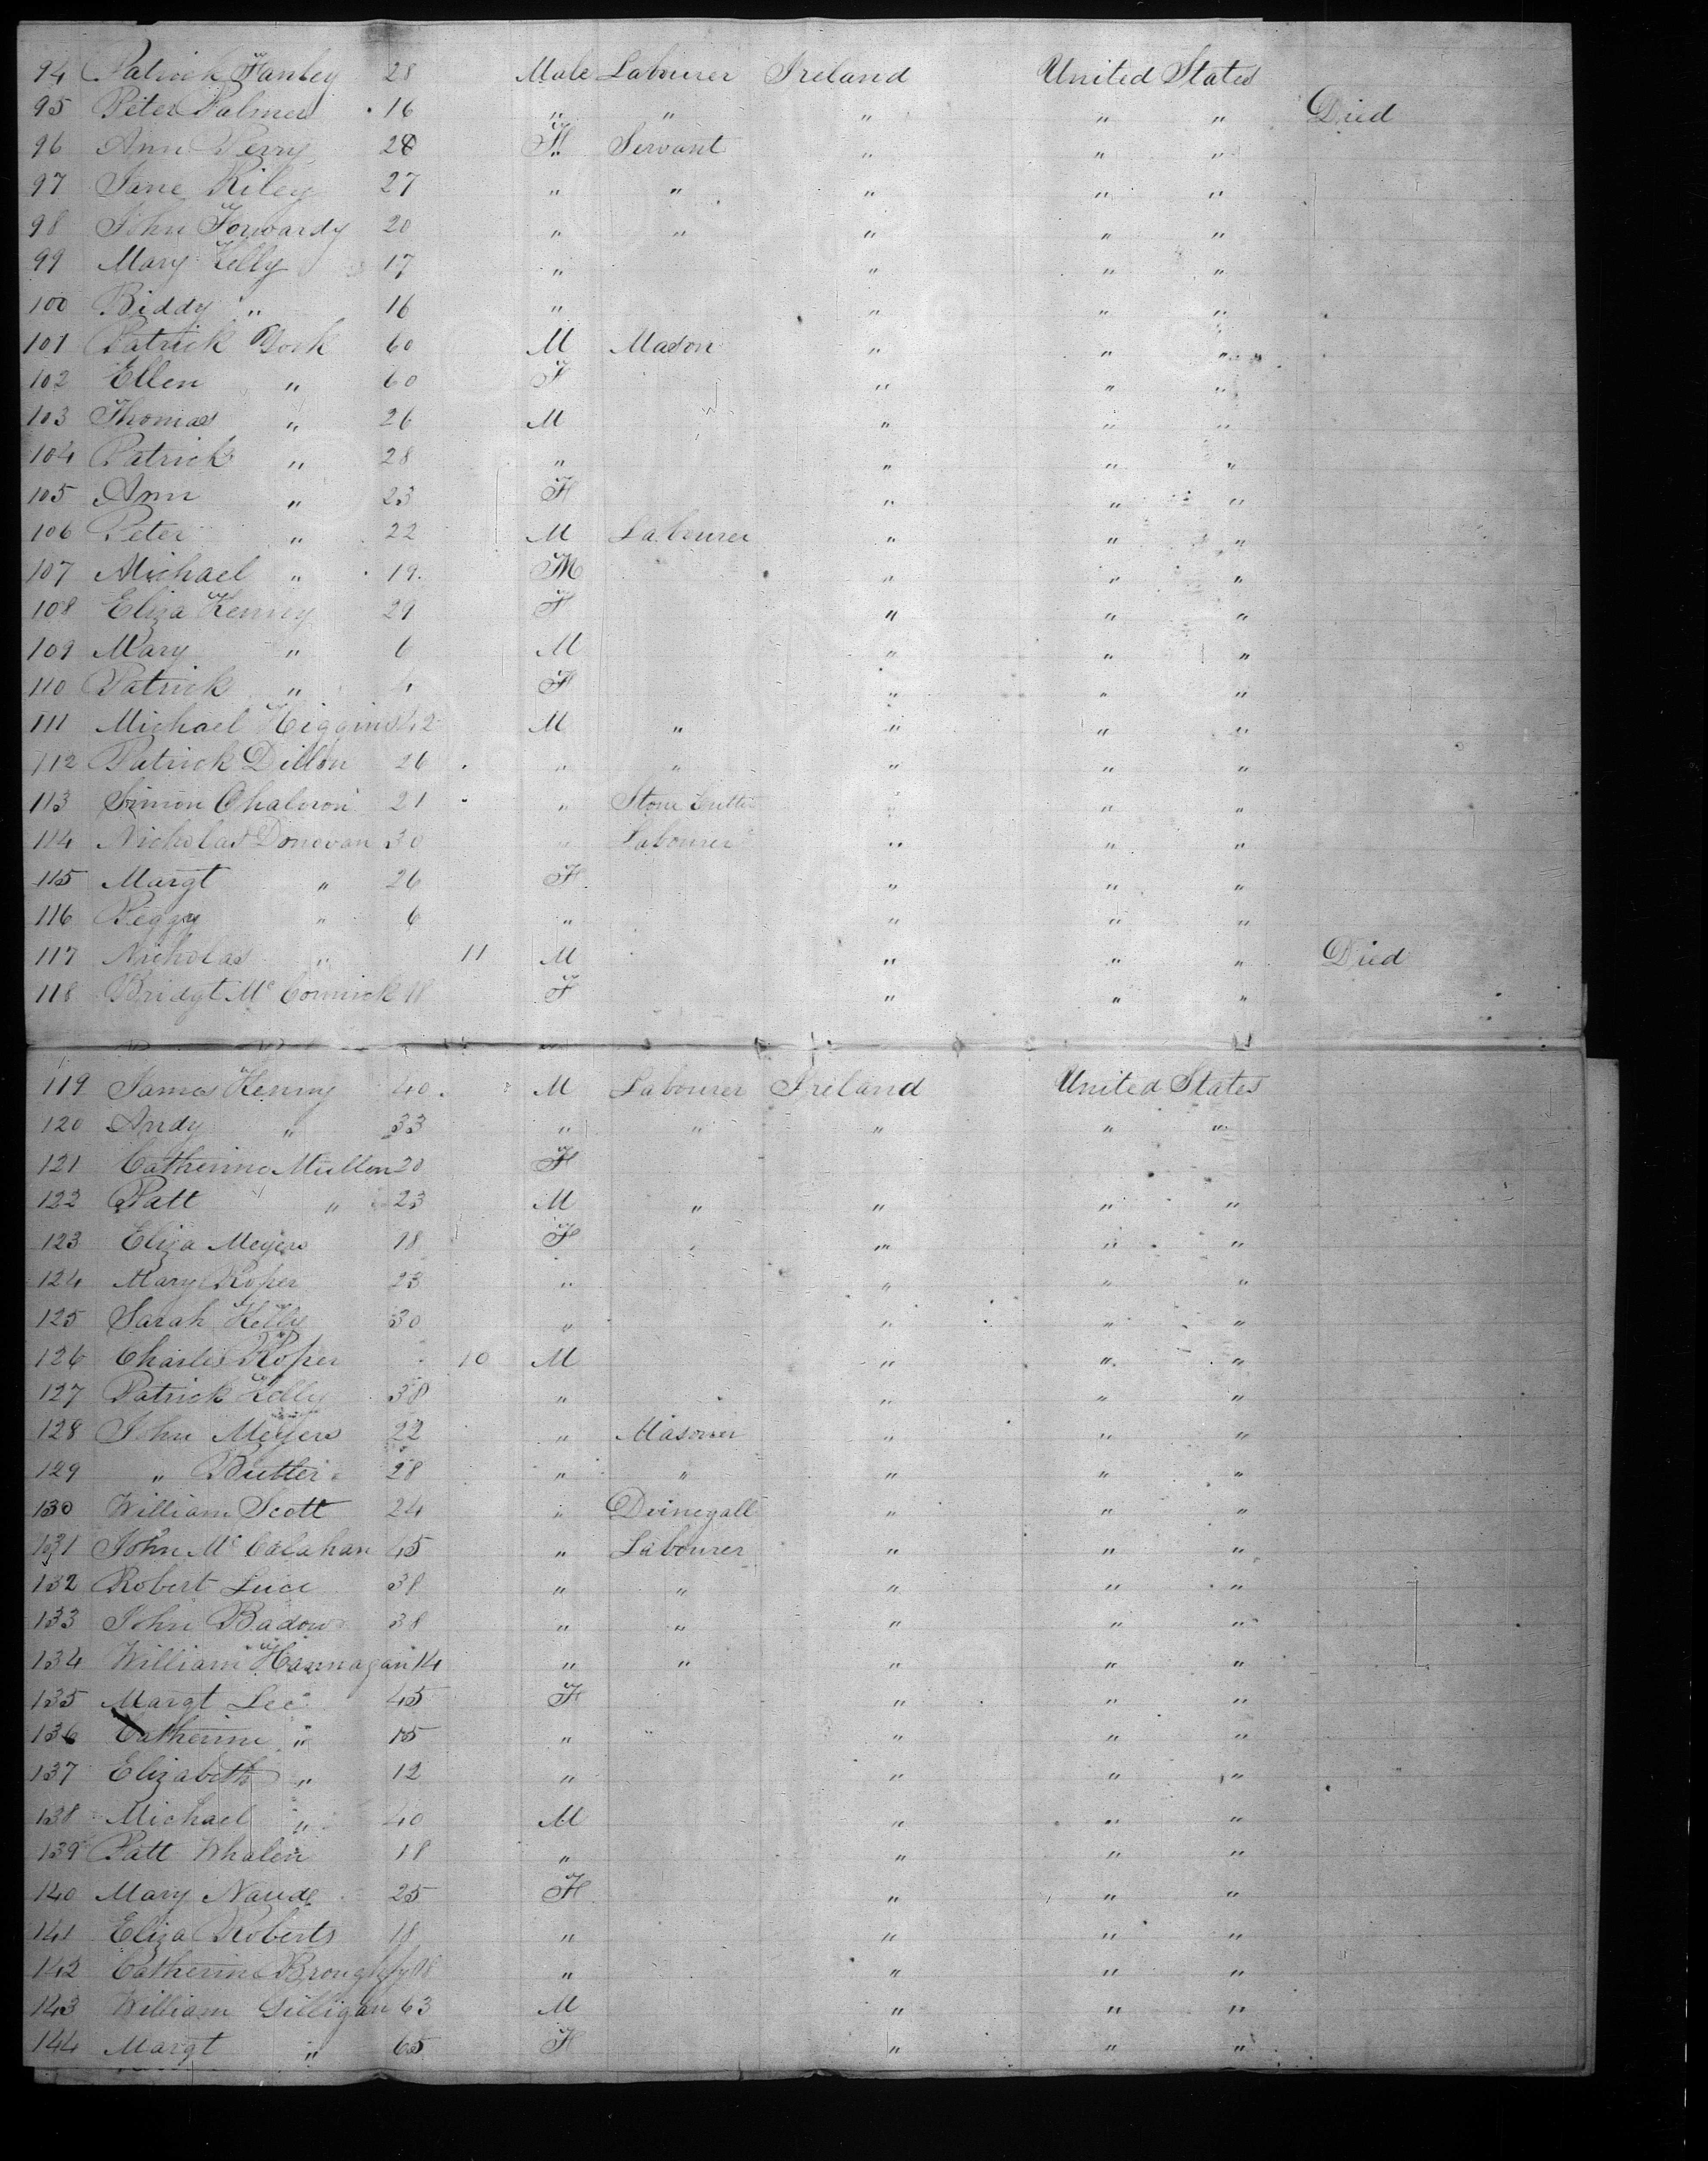 94 Patrick Fanley 28 Male Labourer Ireland United States
95 Peter Palmer 16 " " " " " Died
96 Ann Perry 28 F " Servant " " "
97 Jane Riley 27 " " " " "
98 John Forwardy 20 " " " " "
99 Mary Kelly 17 " " " "
100 Biddy " 16 " " " "
101 Patrick York 60 M Mason " " "
102 Ellen " 60 F " " "
103 Thomas " 26 M " " "
104 Patrick " 28 " " " "
105 Ann " 23 F " " "
106 Peter " 22 M Labourer " " "
107 Michael " 19 M " " "
108 Eliza Kenny 29 F " " "
109 Mary " 6 M " " "
110 Patrick " 4 F " " "
111 Michael Higgins 42 M " " " "
112 Patrick Dillon 26 " " " " "
113 Simon 21 " Stone Cutter " " "
114 Nicholas Donovan 30 " Labourer " " "
115 Margt " 26 F " " "
116 Peggy " 6 " " " "
117 Nicholas " 11 M " " " Died
118 Bridgt Mc Cormick 18 F " " "
119 James Kenny 40 M Labourer Ireland United States
120 Andy " 33 " " " " "
121 Catherine Mullen 20 F
122 Patt " 23 M " " " "
123 Eliza Meyers 18 F " " " "
124 Mary Roper 23 " " " "
125 Sarah Kelly 30 " " " "
126 Charles Roper 10 M " " "
127 Patrick Kelly 38 " " " "
128 John Meyers 22 " Masoner " " "
129 " Butler 28 " " " " "
130 William Scott 24 " " " "
131 John Mc Calahan 45 " Labourer " " "
132 Robert Luce 38 " " " " "
133 John Badow 38 " " " " "
134 William Hannagan 14 " " " " "
135 Margt Lee 45 F " " "
136 Catherine " 15 " " " "
137 Elizabeth " 12 " " " "
138 Michael " 40 M " " "
139 Patt Whalen 18 " " " "
140 Mary 25 F " " "
141 Eliza Roberts 18 " " " "
142 Catherine 18 " " " "
143 William Gilligan 63 M " " "
144 Margt " 65 F " " "